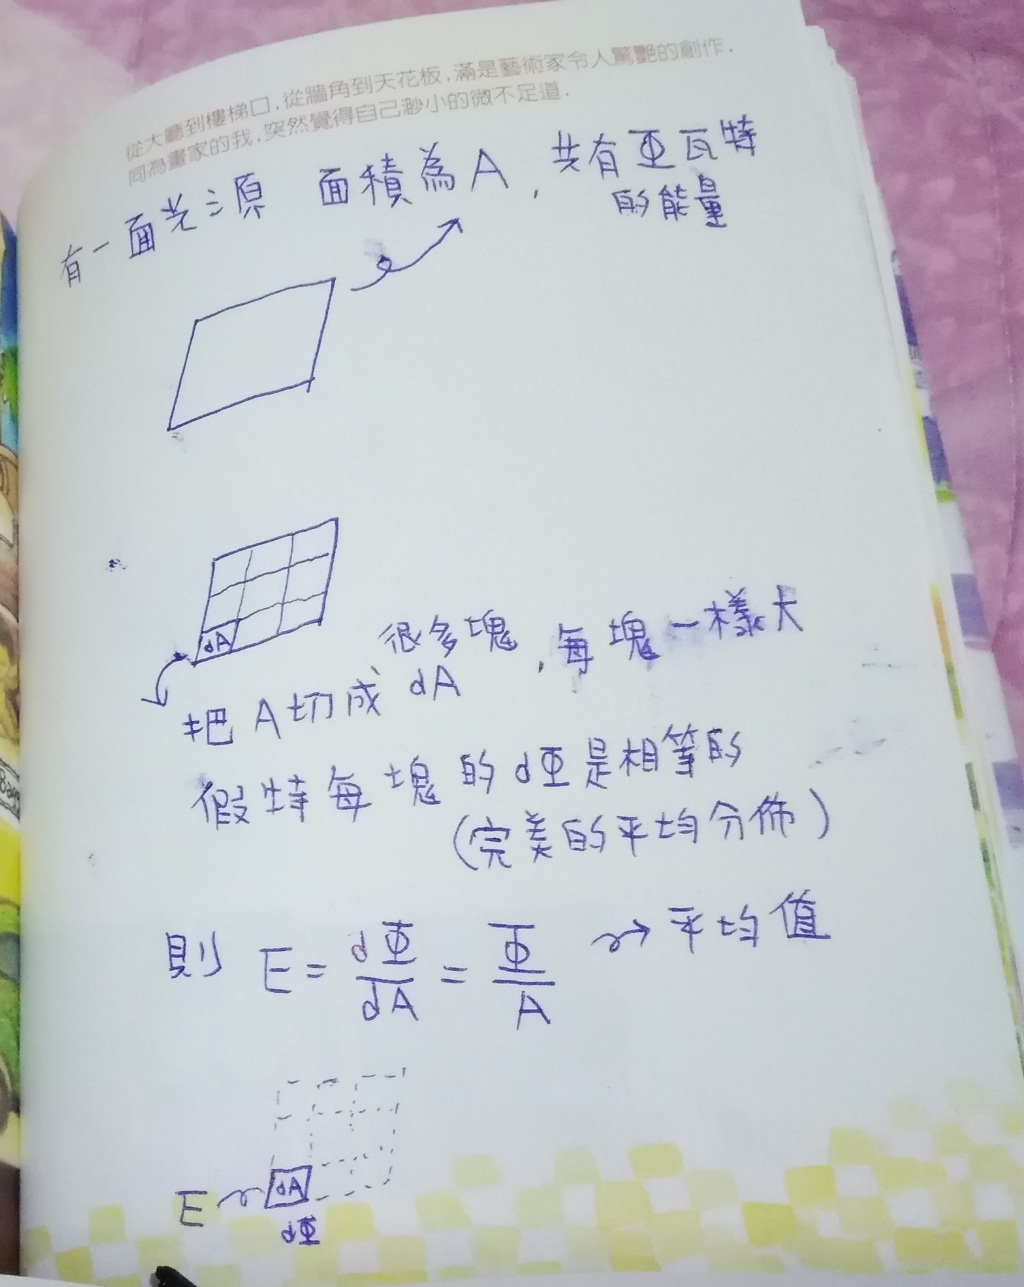 從大廳到樓梯口,從牆角到天花板,滿是藝術家令人驚艷的創作.
同為畫家的我,突然覺得自己渺小的微不足道.
有一面光源 面積為A,共有亞瓦特
的能量
dA
很多塊
把A切成dA,每塊一樣大
假特每塊的dΦ是相等的
(完美的平均分佈)
則 E = dΦ/dA = Φ/A → 平均值
E dA
dΦ